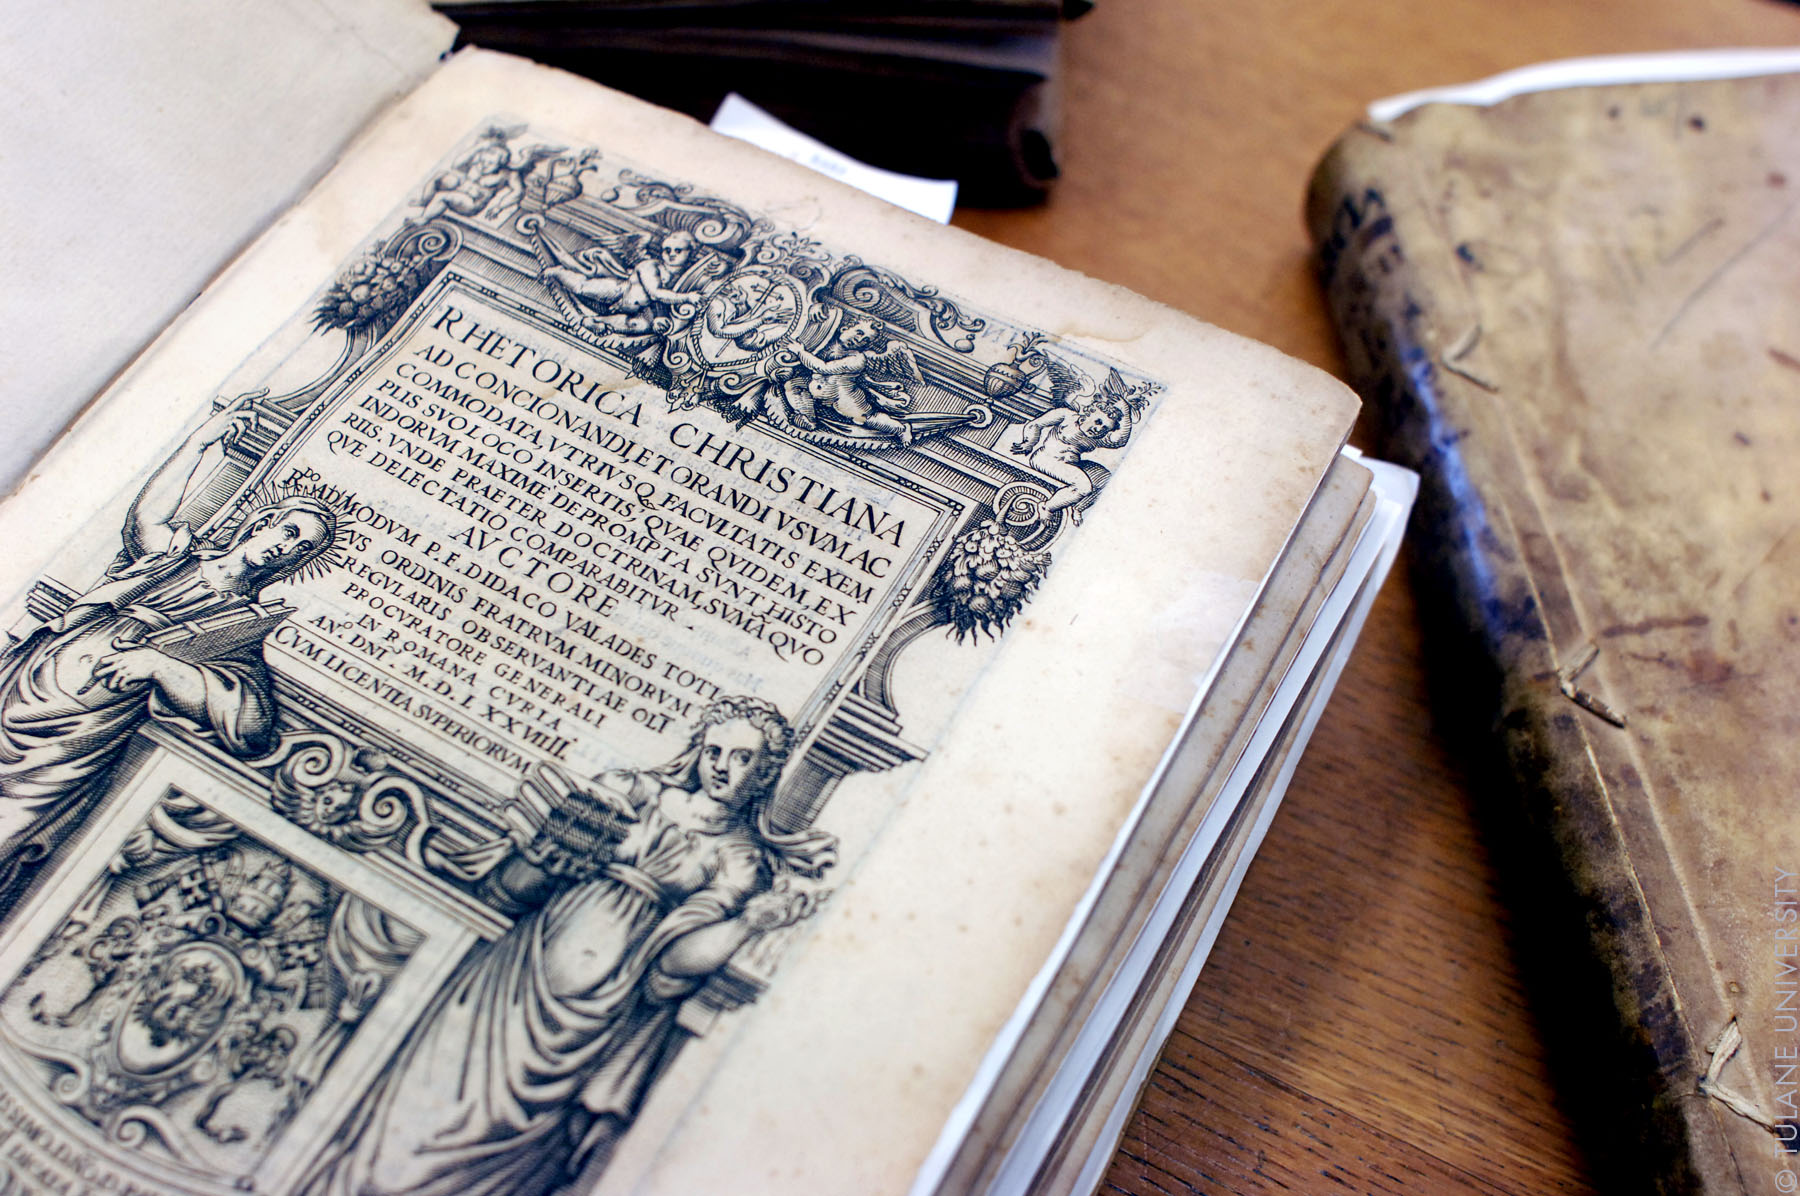 RHETORICA CHRISTIANA
AD CONCIONANDI, ET ORANDI VSVM AC
COMMODATA, VTRIVSQ FACVLTATIS EXEM
PLIS SVO LOCO INSERTIS, QVAE QVIDEM, EX
INDORVM MAXIME DEPROMPTA SVNT HISTO
RIIS. VNDE PRAETER DOCTRINAM, SVMÃ QVO
QVE DELECTATIO COMPARABITVR.
AVCTORE
RDO ADMODVM P. F. DIDACO VALADES TOTI
VS ORDINIS FRATRVM MINORVM
REGVLARIS OBSERVANTIAE OLĨ
PROCVRATORE GENERALI
IN ROMANA CVRIA.
ANo. DNI. M.D.LXXVIIII.
CVM LICENTIA SVPERIORVM
© TULANE UNIVERSITY